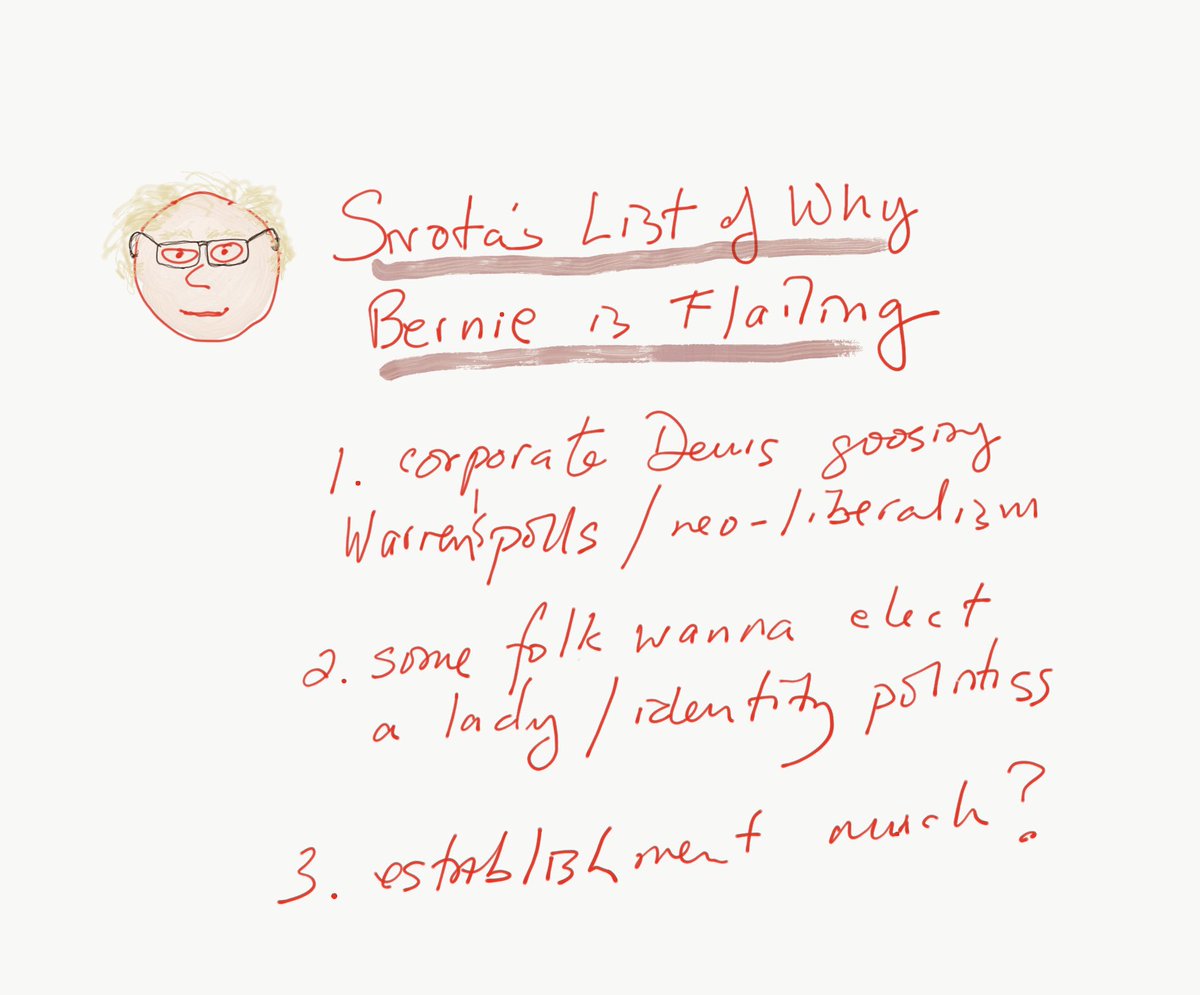 Sirota's List of Why
Bernie is Flailing
1. corporate Dems goosing
Warren's polls / neo-liberalism
2. some folk wanna elect
a lady / identity politiss
3. establishment much?